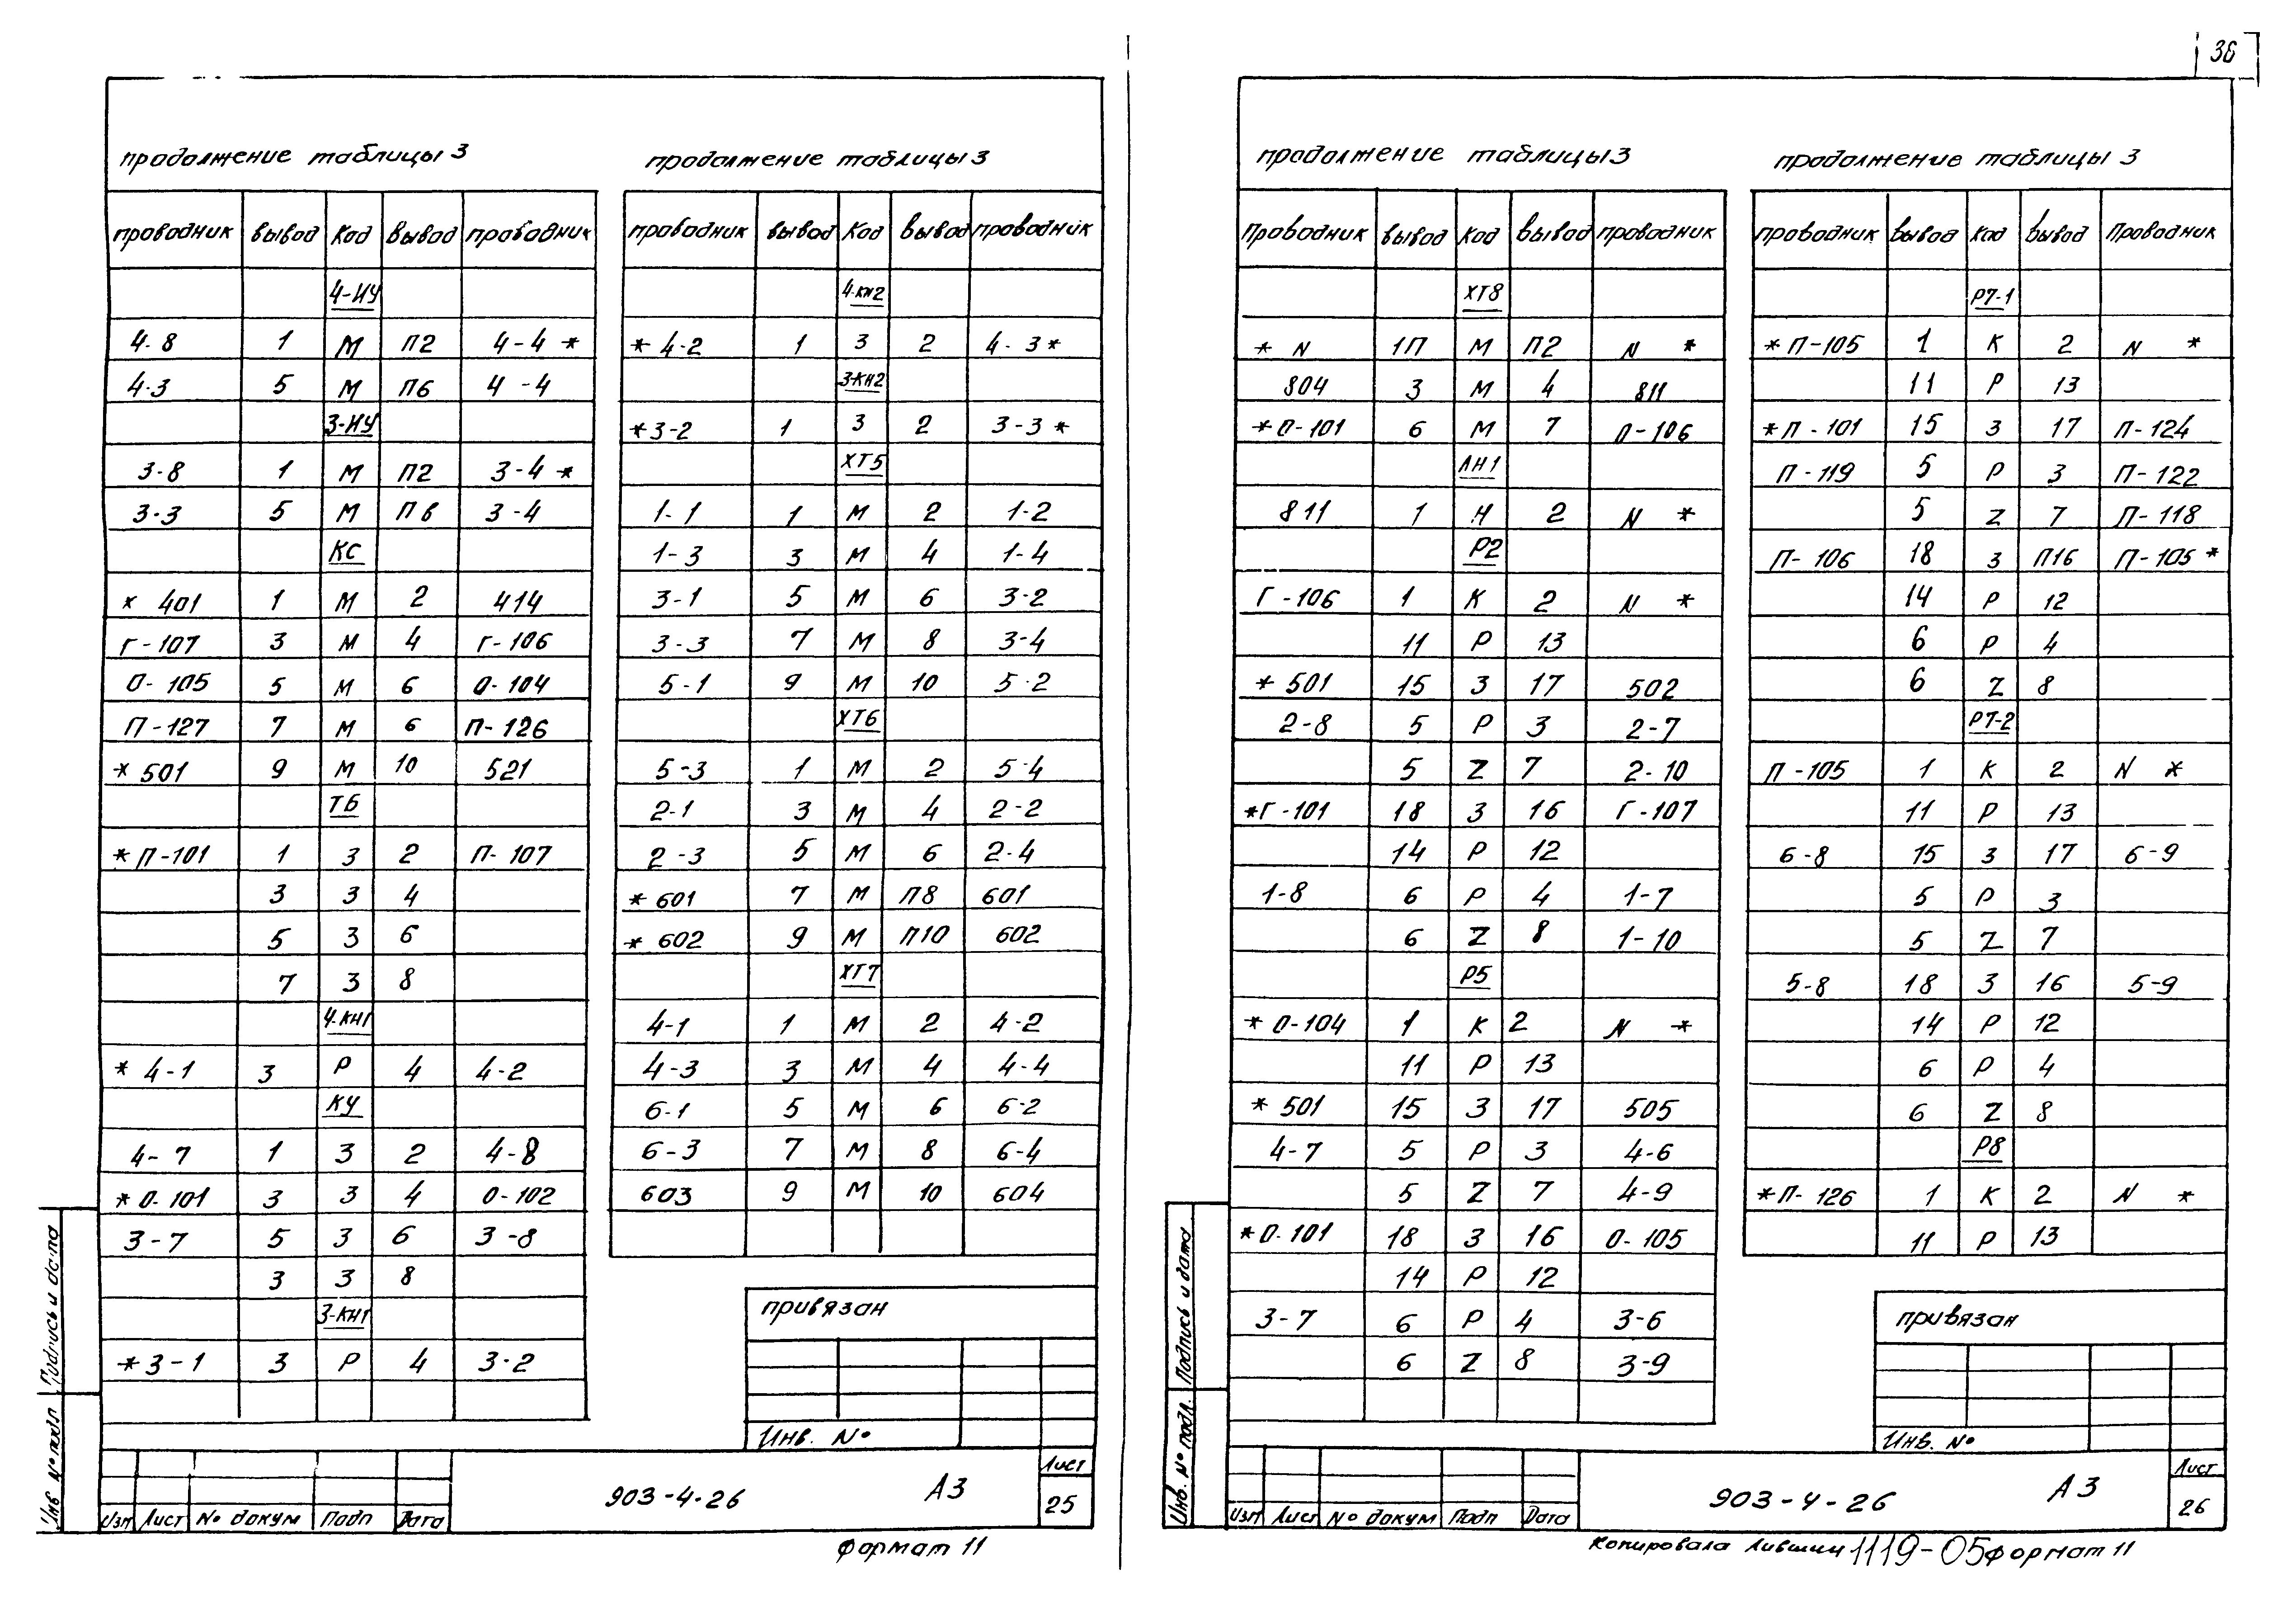 36
продолжение таблицы 3
проводник вывод Код вывод проводник
4-ИУ
4-8 1 М П2 4-4 *
4-3 5 М П6 4-4
3-ИУ
3-8 1 М П2 3-4 *
3-3 5 М П6 3-4
КС
* 401 1 М 2 414
Г-107 3 М 4 Г-106
О-105 5 М 6 О-104
П-127 7 М 6 П-126
* 501 9 М 10 521
Т6
* П-101 1 З 2 П-107
3 З 4
5 З 6
7 З 8
4-КН1
* 4-1 3 Р 4 4-2
КУ
4-7 1 З 2 4-8
* О-101 3 З 4 О-102
3-7 5 З 6 3-8
3 З 8
3-КН1
* 3-1 3 Р 4 3-2
продолжение таблицы 3
проводник вывод Код вывод проводник
4-КН2
* 4-2 1 З 2 4-3 *
3-КН2
* 3-2 1 З 2 3-3 *
ХТ5
1-1 1 М 2 1-2
1-3 3 М 4 1-4
3-1 5 М 6 3-2
3-3 7 М 8 3-4
5-1 9 М 10 5-2
ХТ6
5-3 1 М 2 5-4
2-1 3 М 4 2-2
2-3 5 М 6 2-4
* 601 7 М П8 601
* 602 9 М П10 602
ХТ7
4-1 1 М 2 4-2
4-3 3 М 4 4-4
6-1 5 М 6 6-2
6-3 7 М 8 6-4
603 9 М 10 604
привязан
Инв. №
Подпись и дата
Инв № подл
Изм Лист № докум Подп Дата
903-4-26 А3
Лист
25
Формат 11
продолжение таблицы 3
Проводник вывод Код вывод проводник
ХТ8
* N 1П М П2 N *
804 3 М 4 811
* О-101 6 М 7 О-106
ЛН1
811 1 Н 2 N *
Р2
Г-106 1 К 2 N *
11 Р 13
* 501 15 З 17 502
2-8 5 Р 3 2-7
5 Z 7 2-10
* Г-101 18 З 16 Г-107
14 Р 12
1-8 6 Р 4 1-7
6 Z 8 1-10
Р5
* О-104 1 К 2 N *
11 Р 13
* 501 15 З 17 505
4-7 5 Р 3 4-6
5 Z 7 4-9
* О-101 18 З 16 О-105
14 Р 12
3-7 6 Р 4 3-6
6 Z 8 3-9
продолжение таблицы 3
проводник вывод Код вывод Проводник
Р7-1
* П-105 1 К 2 N *
11 Р 13
* П-101 15 З 17 П-124
П-119 5 Р 3 П-122
5 Z 7 П-118
П-106 18 З П16 П-105 *
14 Р 12
6 Р 4
6 Z 8
Р7-2
П-105 1 К 2 N *
11 Р 13
6-8 15 З 17 6-9
5 Р 3
5 Z 7
5-8 18 З 16 5-9
14 Р 12
6 Р 4
6 Z 8
Р8
* П-126 1 К 2 N *
11 Р 13
привязан
Инв. №
Подпись и дата
Инв. № подл.
Изм Лист № докум Подп Дата
903-4-26 А3
Лист
26
Копировала Лившиц 1119-05 Формат 11